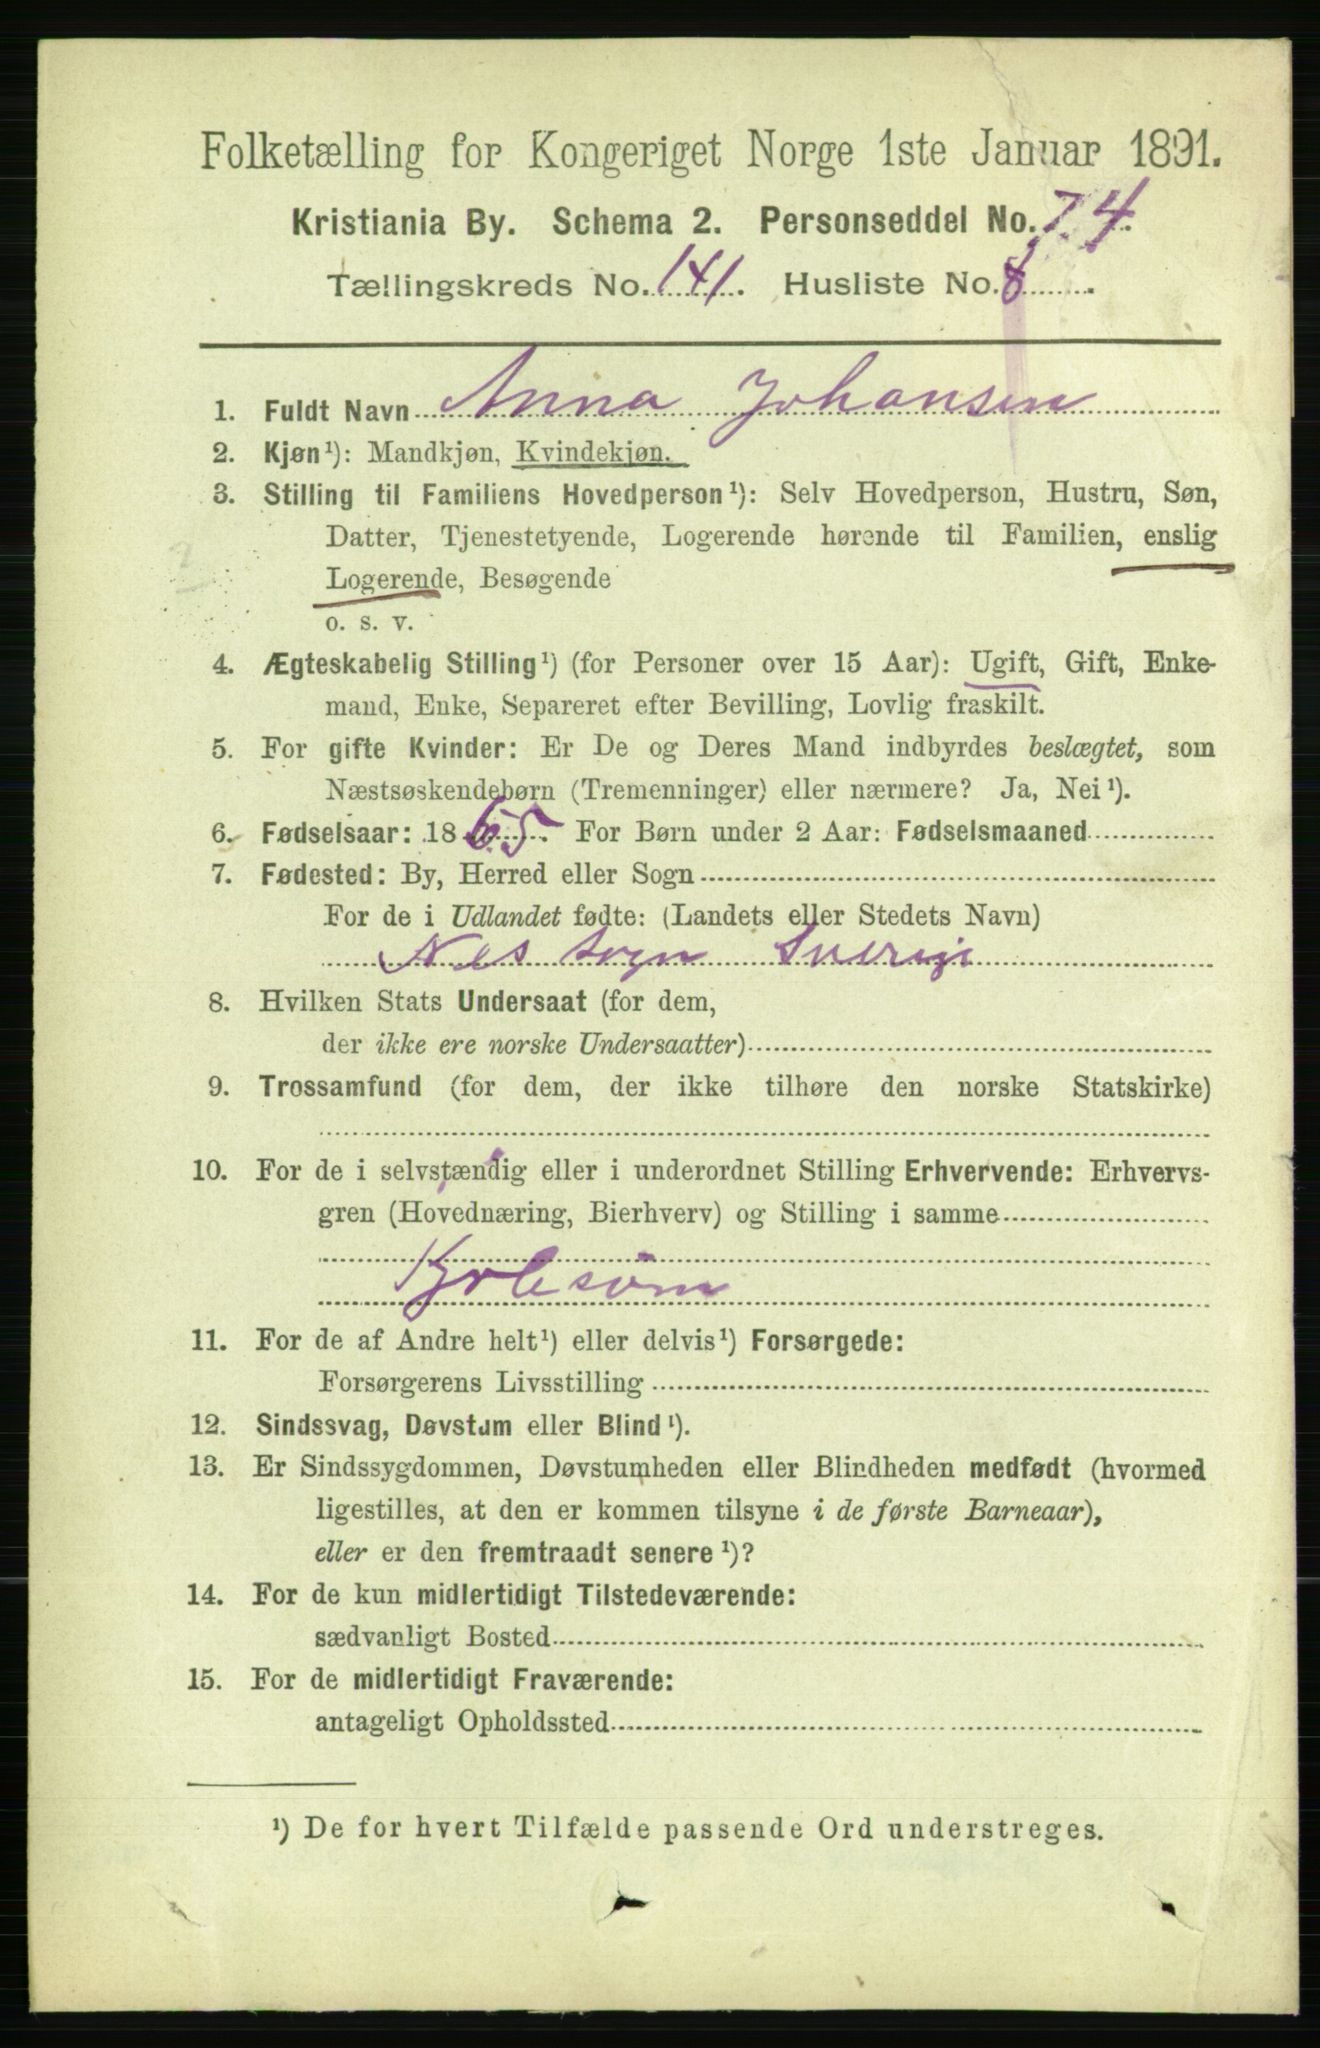 Folketælling for Kongeriget Norge 1ste Januar 1891.
Kristiania By. Schema 2. Personseddel No. 74.
Tællingskreds No. 141. Husliste No. 8.
1. Fuldt Navn Anna Johansen
2. Kjøn¹): Mandkjøn, Kvindekjøn.
3. Stilling til Familiens Hovedperson¹): Selv Hovedperson, Hustru, Søn,
Datter, Tjenestetyende, Logerende hørende til Familien, enslig
Logerende, Besøgende
o. s. v.
4. Ægteskabelig Stilling¹) (for Personer over 15 Aar): Ugift, Gift, Enke-
mand, Enke, Separeret efter Bevilling, Lovlig fraskilt.
5. For gifte Kvinder: Er De og Deres Mand indbyrdes beslægtet, som
Næstsøskendebørn (Tremenninger) eller nærmere? Ja, Nei¹).
6. Fødselsaar: 1865. For Børn under 2 Aar: Fødselsmaaned
7. Fødested: By, Herred eller Sogn
For de i Udlandet fødte: (Landets eller Stedets Navn)
Nes sogn Sverige
8. Hvilken Stats Undersaat (for dem,
der ikke ere norske Undersaatter)
9. Trossamfund (for dem, der ikke tilhøre den norske Statskirke)
10. For de i selvstændig eller i underordnet Stilling Erhvervende: Erhvervs-
gren (Hovednæring, Bierhverv) og Stilling i samme
Kjolesøm
11. For de af Andre helt¹) eller delvis¹) Forsørgede:
Forsørgerens Livsstilling
12. Sindssvag, Døvstum eller Blind¹).
13. Er Sindssygdommen, Døvstumheden eller Blindheden medfødt (hvormed
ligestilles, at den er kommen tilsyne i de første Barneaar),
eller er den fremtraadt senere¹)?
14. For de kun midlertidigt Tilstedeværende:
sædvanligt Bosted
15. For de midlertidigt Fraværende:
antageligt Opholdssted
¹) De for hvert Tilfælde passende Ord understreges.